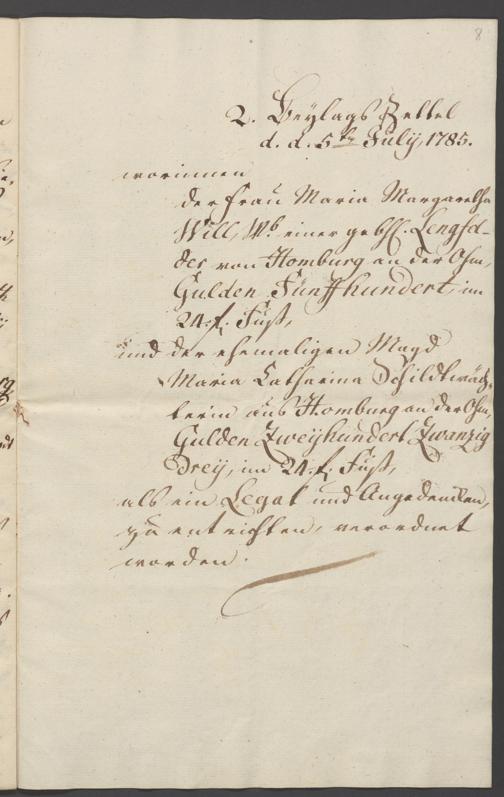 8
2. Beylags Zettel
d. d. 5ten July, 1785.
worinnen
der Frau Maria Margaretha
Will, Wb. einer gebh. Lengfel-
der von Homburg an der Ohm,
Gulden Fünffhundert, im
24. f. Fuß,
und der ehemaligen Magd
Maria Catharina Schildtwäch-
terin aus Homburg an der Ohm,
Gulden Zweyhundert Zwanzig
Drey, im 24. f. Fuß,
als ein Legat und Angedencken,
zu entrichten, verordnet
worden.